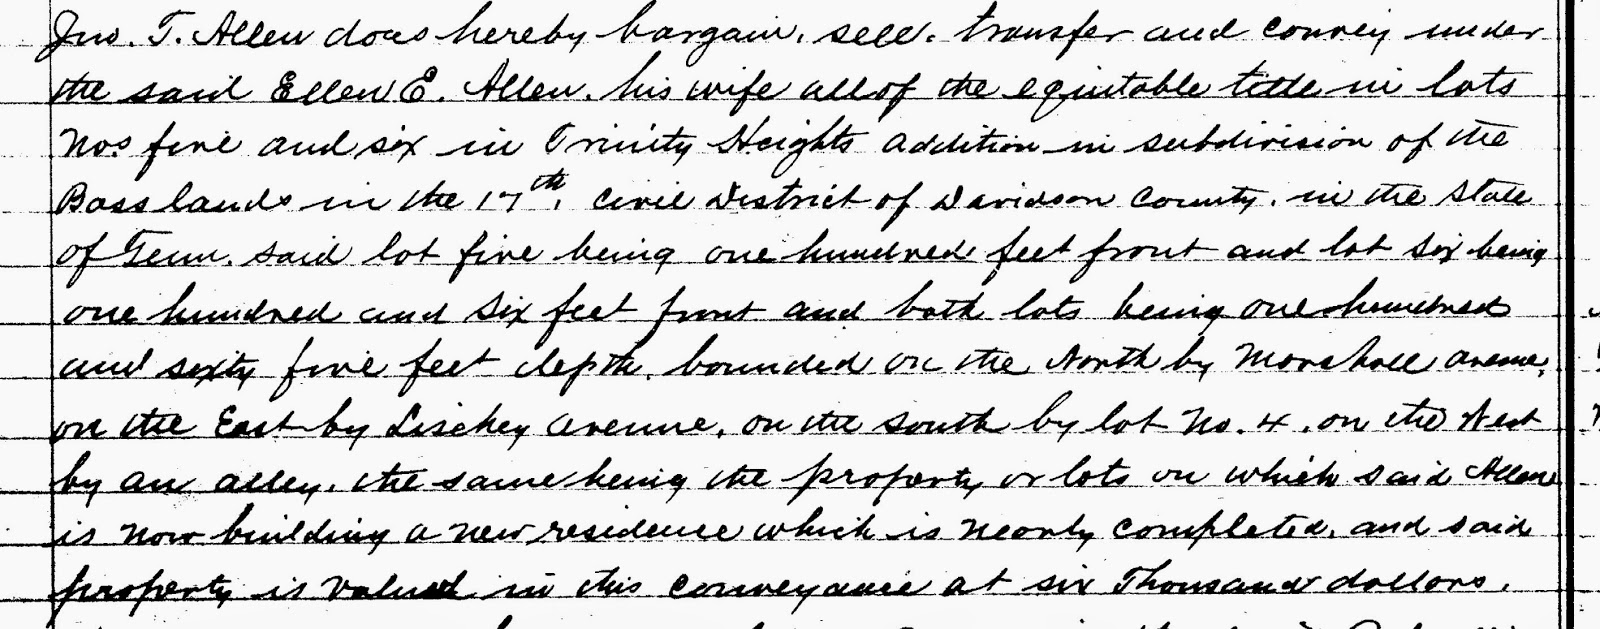 Jno. T. Allen does hereby bargain, sell, transfer and convey under
the said Ellen E. Allen, his wife all of the equitable title in lots
Nos five and six in Trinity Heights addition in subdivision of the
Bass lands in the 17th. Civil District of Davidson County, in the State
of Tenn. said lot five being one hundred feet front and lot six being
one hundred and six feet front and both lots being one hundred
and sixty five feet depth, bounded on the North by Marshall avenue,
on the East by Lischey avenue, on the south by lot No. 4, on the West
by an alley, the same being the property or lots on which said Allen
is now building a new residence which is nearly completed, and said
property is valued in this conveyance at six Thousand dollars.